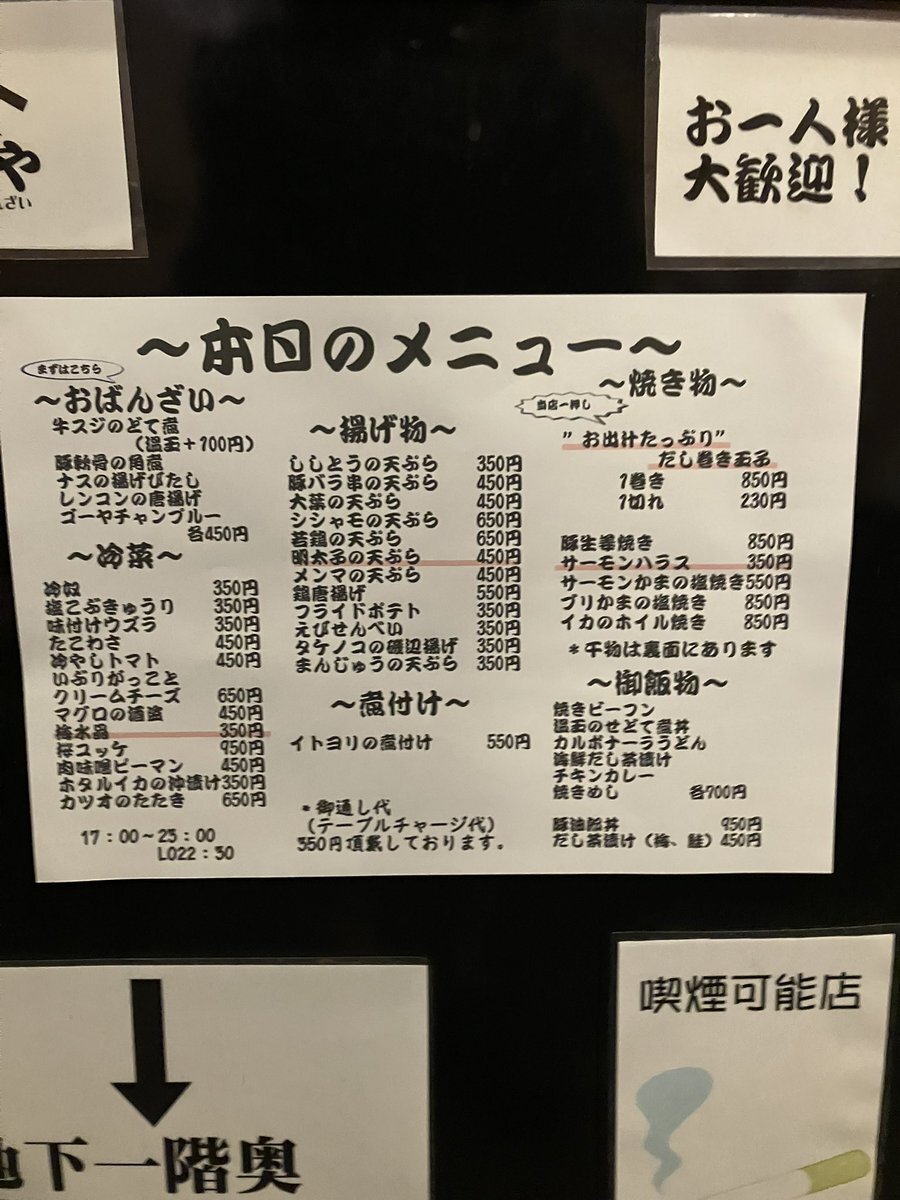 や
ざい
お一人様
大歓迎！
～本日のメニュー～
まずはこちら
～おばんざい～
牛スジのどて煮
（温玉＋100円）
豚軟骨の角煮
ナスの揚げびたし
レンコンの唐揚げ
ゴーヤチャンプルー
各450円
～冷菜～
冷奴 350円
塩こぶきゅうり 350円
味付けウズラ 350円
たこわさ 450円
冷やしトマト 450円
いぶりがっこと
クリームチーズ 650円
マグロの酒盗 450円
梅水晶 350円
桜ユッケ 950円
肉味噌ピーマン 450円
ホタルイカの沖漬け350円
カツオのたたき 650円
17：00～23：00
LO22：30
～揚げ物～
ししとうの天ぷら 350円
豚バラ串の天ぷら 450円
大葉の天ぷら 450円
シシャモの天ぷら 650円
若鶏の天ぷら 650円
明太子の天ぷら 450円
メンマの天ぷら 450円
鶏唐揚げ 550円
フライドポテト 350円
えびせんべい 350円
タケノコの磯辺揚げ 350円
まんじゅうの天ぷら 350円
～煮付け～
イトヨリの煮付け 550円
＊御通し代
（テーブルチャージ代）
350円頂戴しております。
～焼き物～
当店一押し
”お出汁たっぷり”
だし巻き玉子
1巻き 850円
1切れ 230円
豚生姜焼き 850円
サーモンハラス 350円
サーモンかまの塩焼き550円
ブリかまの塩焼き 850円
イカのホイル焼き 850円
＊干物は裏面にあります
～御飯物～
焼きビーフン
温玉のせどて煮丼
カルボナーラうどん
海鮮だし茶漬け
チキンカレー
焼きめし 各700円
豚油脂丼 950円
だし茶漬け（梅、鮭）450円
地下一階奥
喫煙可能店